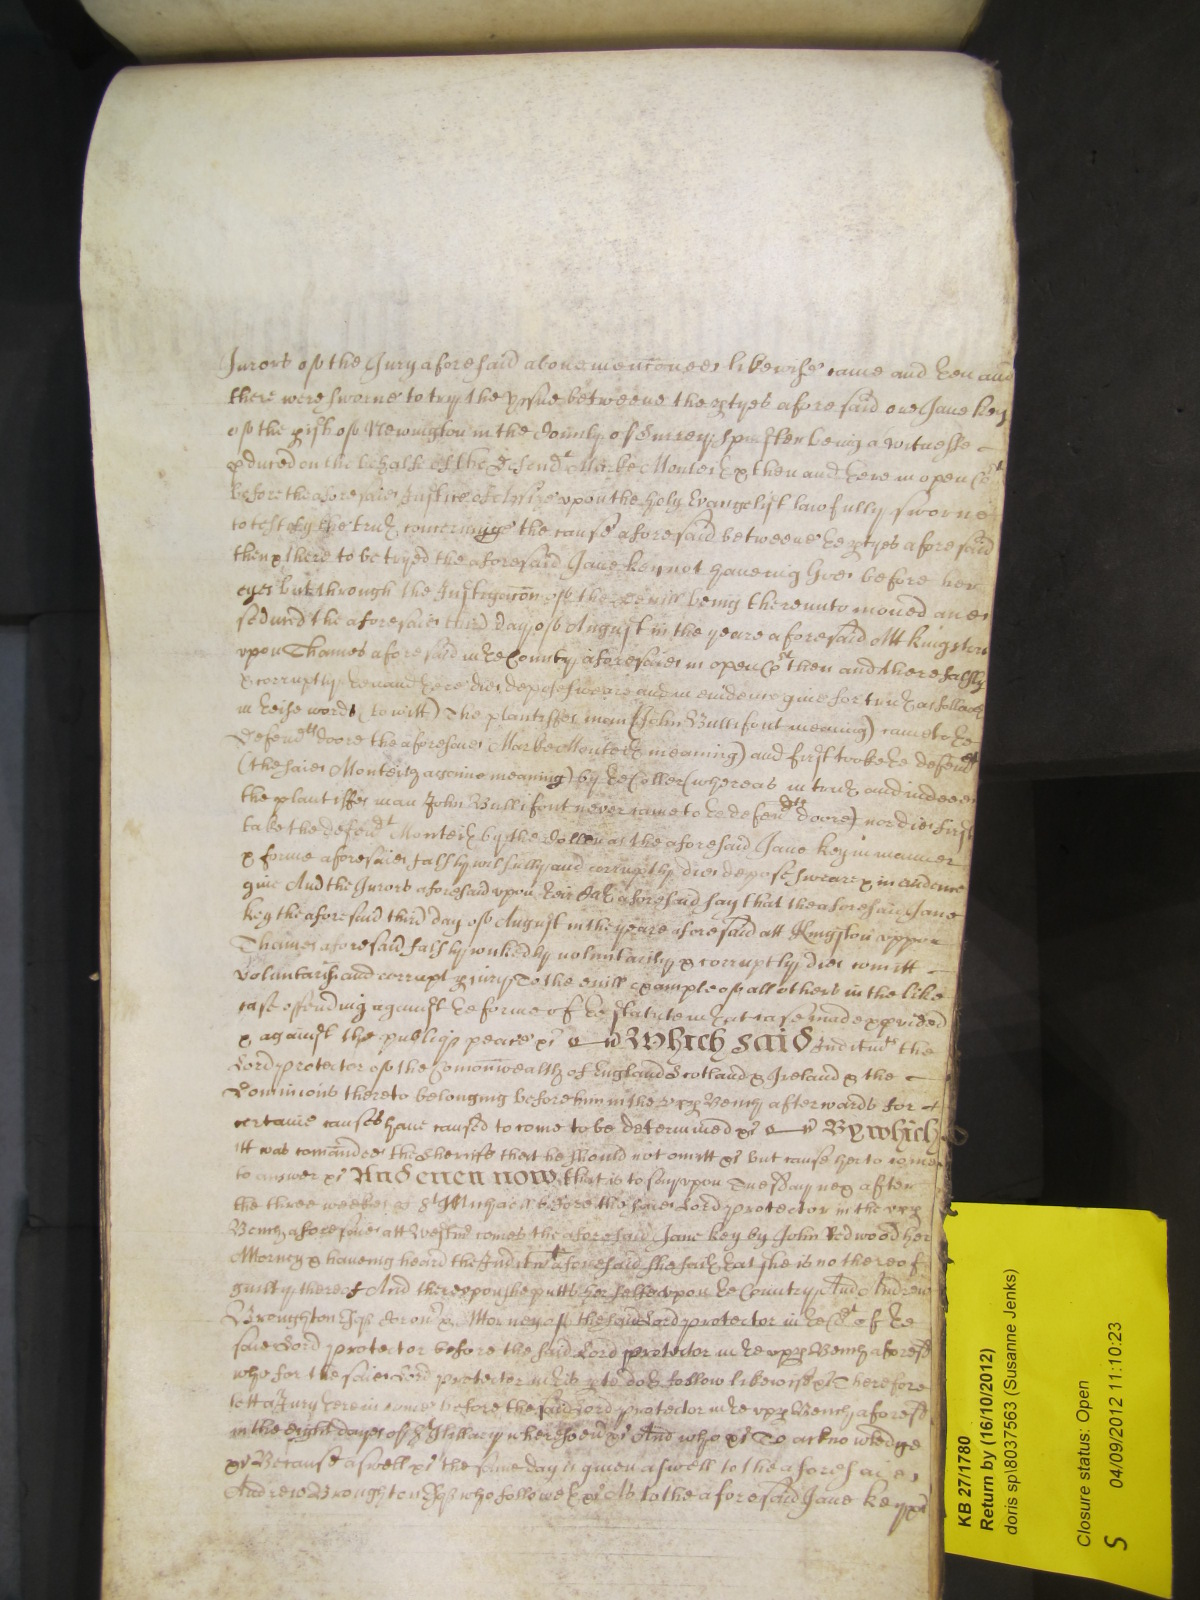 Jurors of the Jury aforesaid abovemenconed likewise came and then and
there were sworne to try the yssue betweene the ptyes aforesaid one Jane Key
of the pish of Newington in the County of Surrey Spinster being a witnesse
pduced on the behalfe of the Defendt Marke Monteith then and there in open Cort
before the aforesaid Justice of Assize upon the holy Evangelist lawfully sworne
to testify the truth concerninge the cause aforesaid betweene the ptyes aforesaid
then & there to be tryed the aforesaid Jane Key not haveing God before her
eyes but through the Instigacon of the Devill being thereunto moved and
seduced the aforesaid third day of August in the yeare aforesaid Att Kingston
upon Thames aforesaid in the County aforesaid in open Cort then and there falsly
& corruptly then and there did depose sweare and in evidence give for truth as followeth
in theise words (to witt) The plantiffes man (John Bullifont meaning) came to the
Defendts doore the aforesaid Marke Monteith meaning) and first tooke the defendt
(the said Monteith againe meaning) by the Coller (whereas in truth and indeed
the plantiffes man John Bullifont never came to the defendts doore) nor did first
take the defendt Monteith by the Coller as the aforesaid Jane Key in manner
& forme aforesaid falsly wilfully and corruptly did depose sweare & in evidence
give And the Jurors aforesaid upon their Oath aforesaid say that the aforesaid Jane
Key the aforesaid third day of August in the yeare aforesaid att Kingston uppon
Thames aforesaid falsly wickedly voluntarily & corruptly did comitt
voluntarie and corrupt piury To the evill example of all others in the like
case offending against the forme of the statute in that case made & pvided
& against the publiq peace &c Which said Inditmt the
Lord protector of the Comonwealth of England Scotland & Ireland & the
Dominions thereto belonging before him in the upp Bench afterwards for
certaine causes have caused to come to be determined &c By which
itt was comanded the Sheriffe that he should not omitt &c but cause her to come
to answer &c And even now that is to say upon Tuesday next after
the three weekes of St Michael before the said Lord protector in the upp
Bench aforesaid att Westmr comes the aforesaid Jane Key by John Redwood her
Attorney & haveing heard the Inditmt aforesaid she saith that she is no thereof
guilty thereof And thereupon she putts her selfe upon the Country And Andrew
Broughton Esqr Coronr & Attorney of the said Lord protector in the Cort of the
said Lord protector before the said Lord protector in the upp Bench aforesd
who for the said Lord protector in this pte doth follow likewise &c Therefore
lett a Jury therein come before the said Lord protector in the upp Bench aforesd
in the eight dayes of St Hillary wheresoevr &c And who &c To acknowledge
&c Because aswell &c the same day is given aswell to the aforesaid
Andrew Broughton Esqr who followeth &c As to the aforesaid Jane Key &c
KB 27/1780
Return by (16/10/2012)
doris sp\8037563 (Susanne Jenks)
Closure status: Open
S 04/09/2012 11:10:23